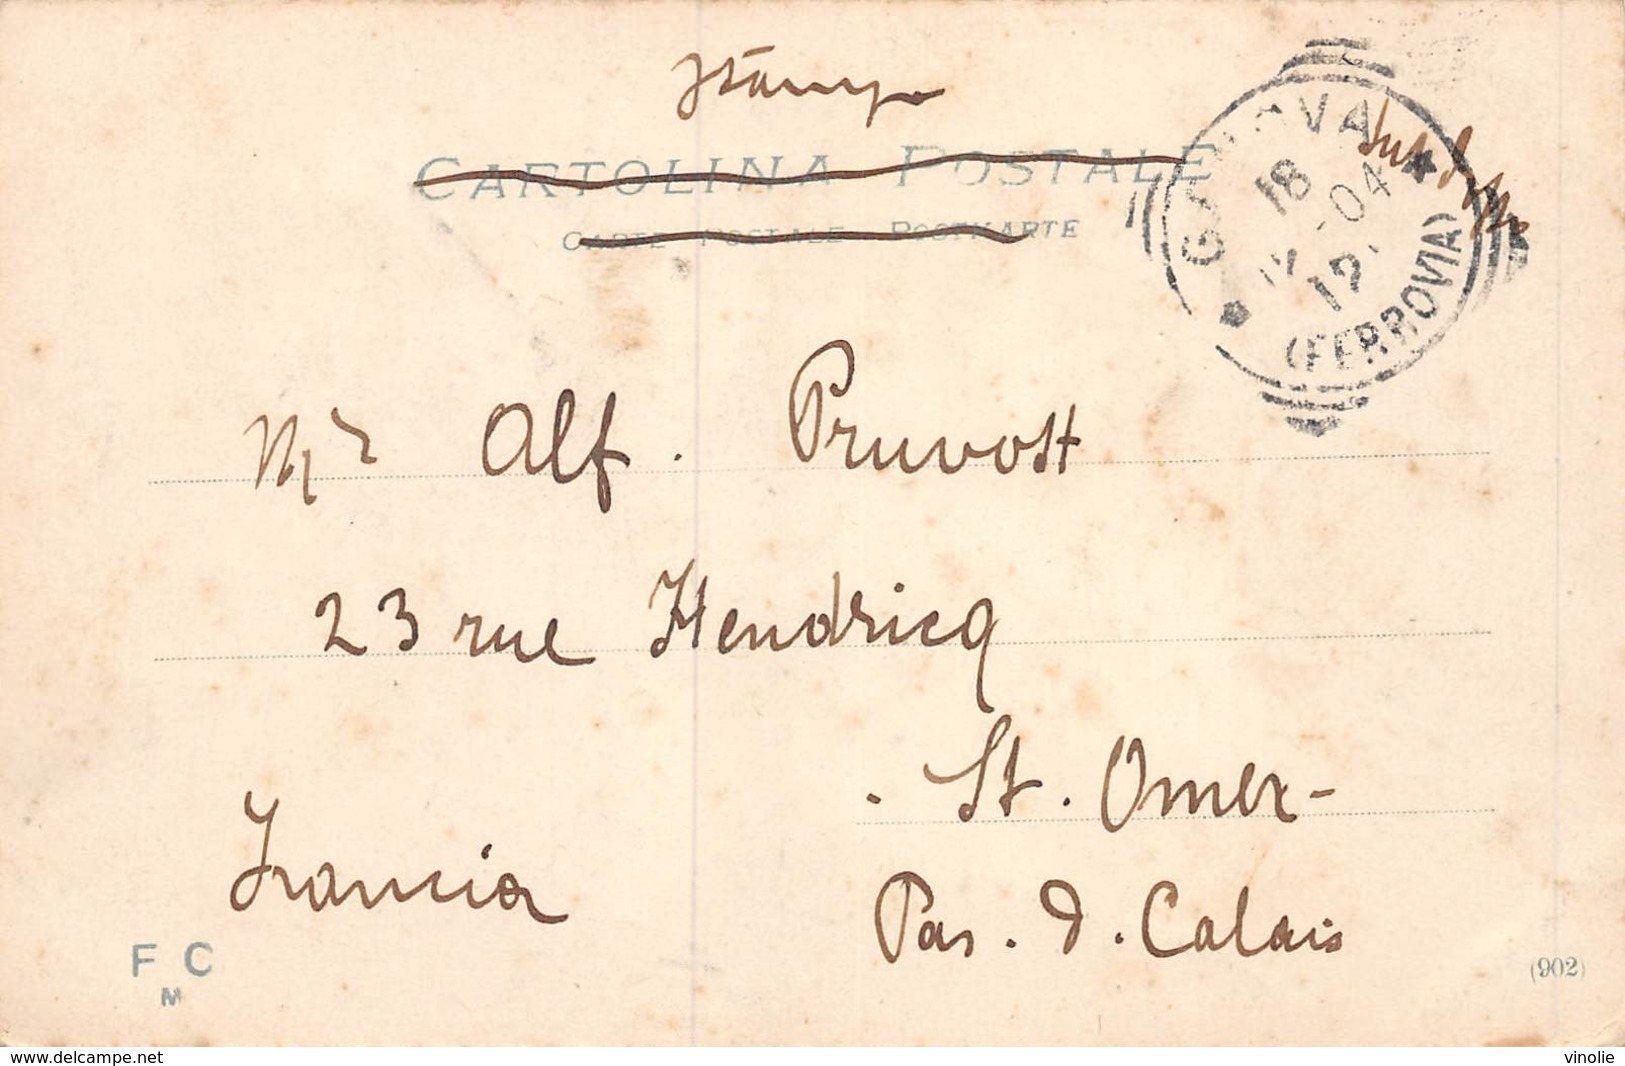 Stampe
CARTOLINA POSTALE
CARTE POSTALE - POSTKARTE
GENOVA
18
-04
12
(FERROVIA)
Mr Alf. Pruvost
23 rue Hendricq
St. Omer-
Francia
Pas. d. Calais
F C
M
(902)
www.delcampe.net
vinolie